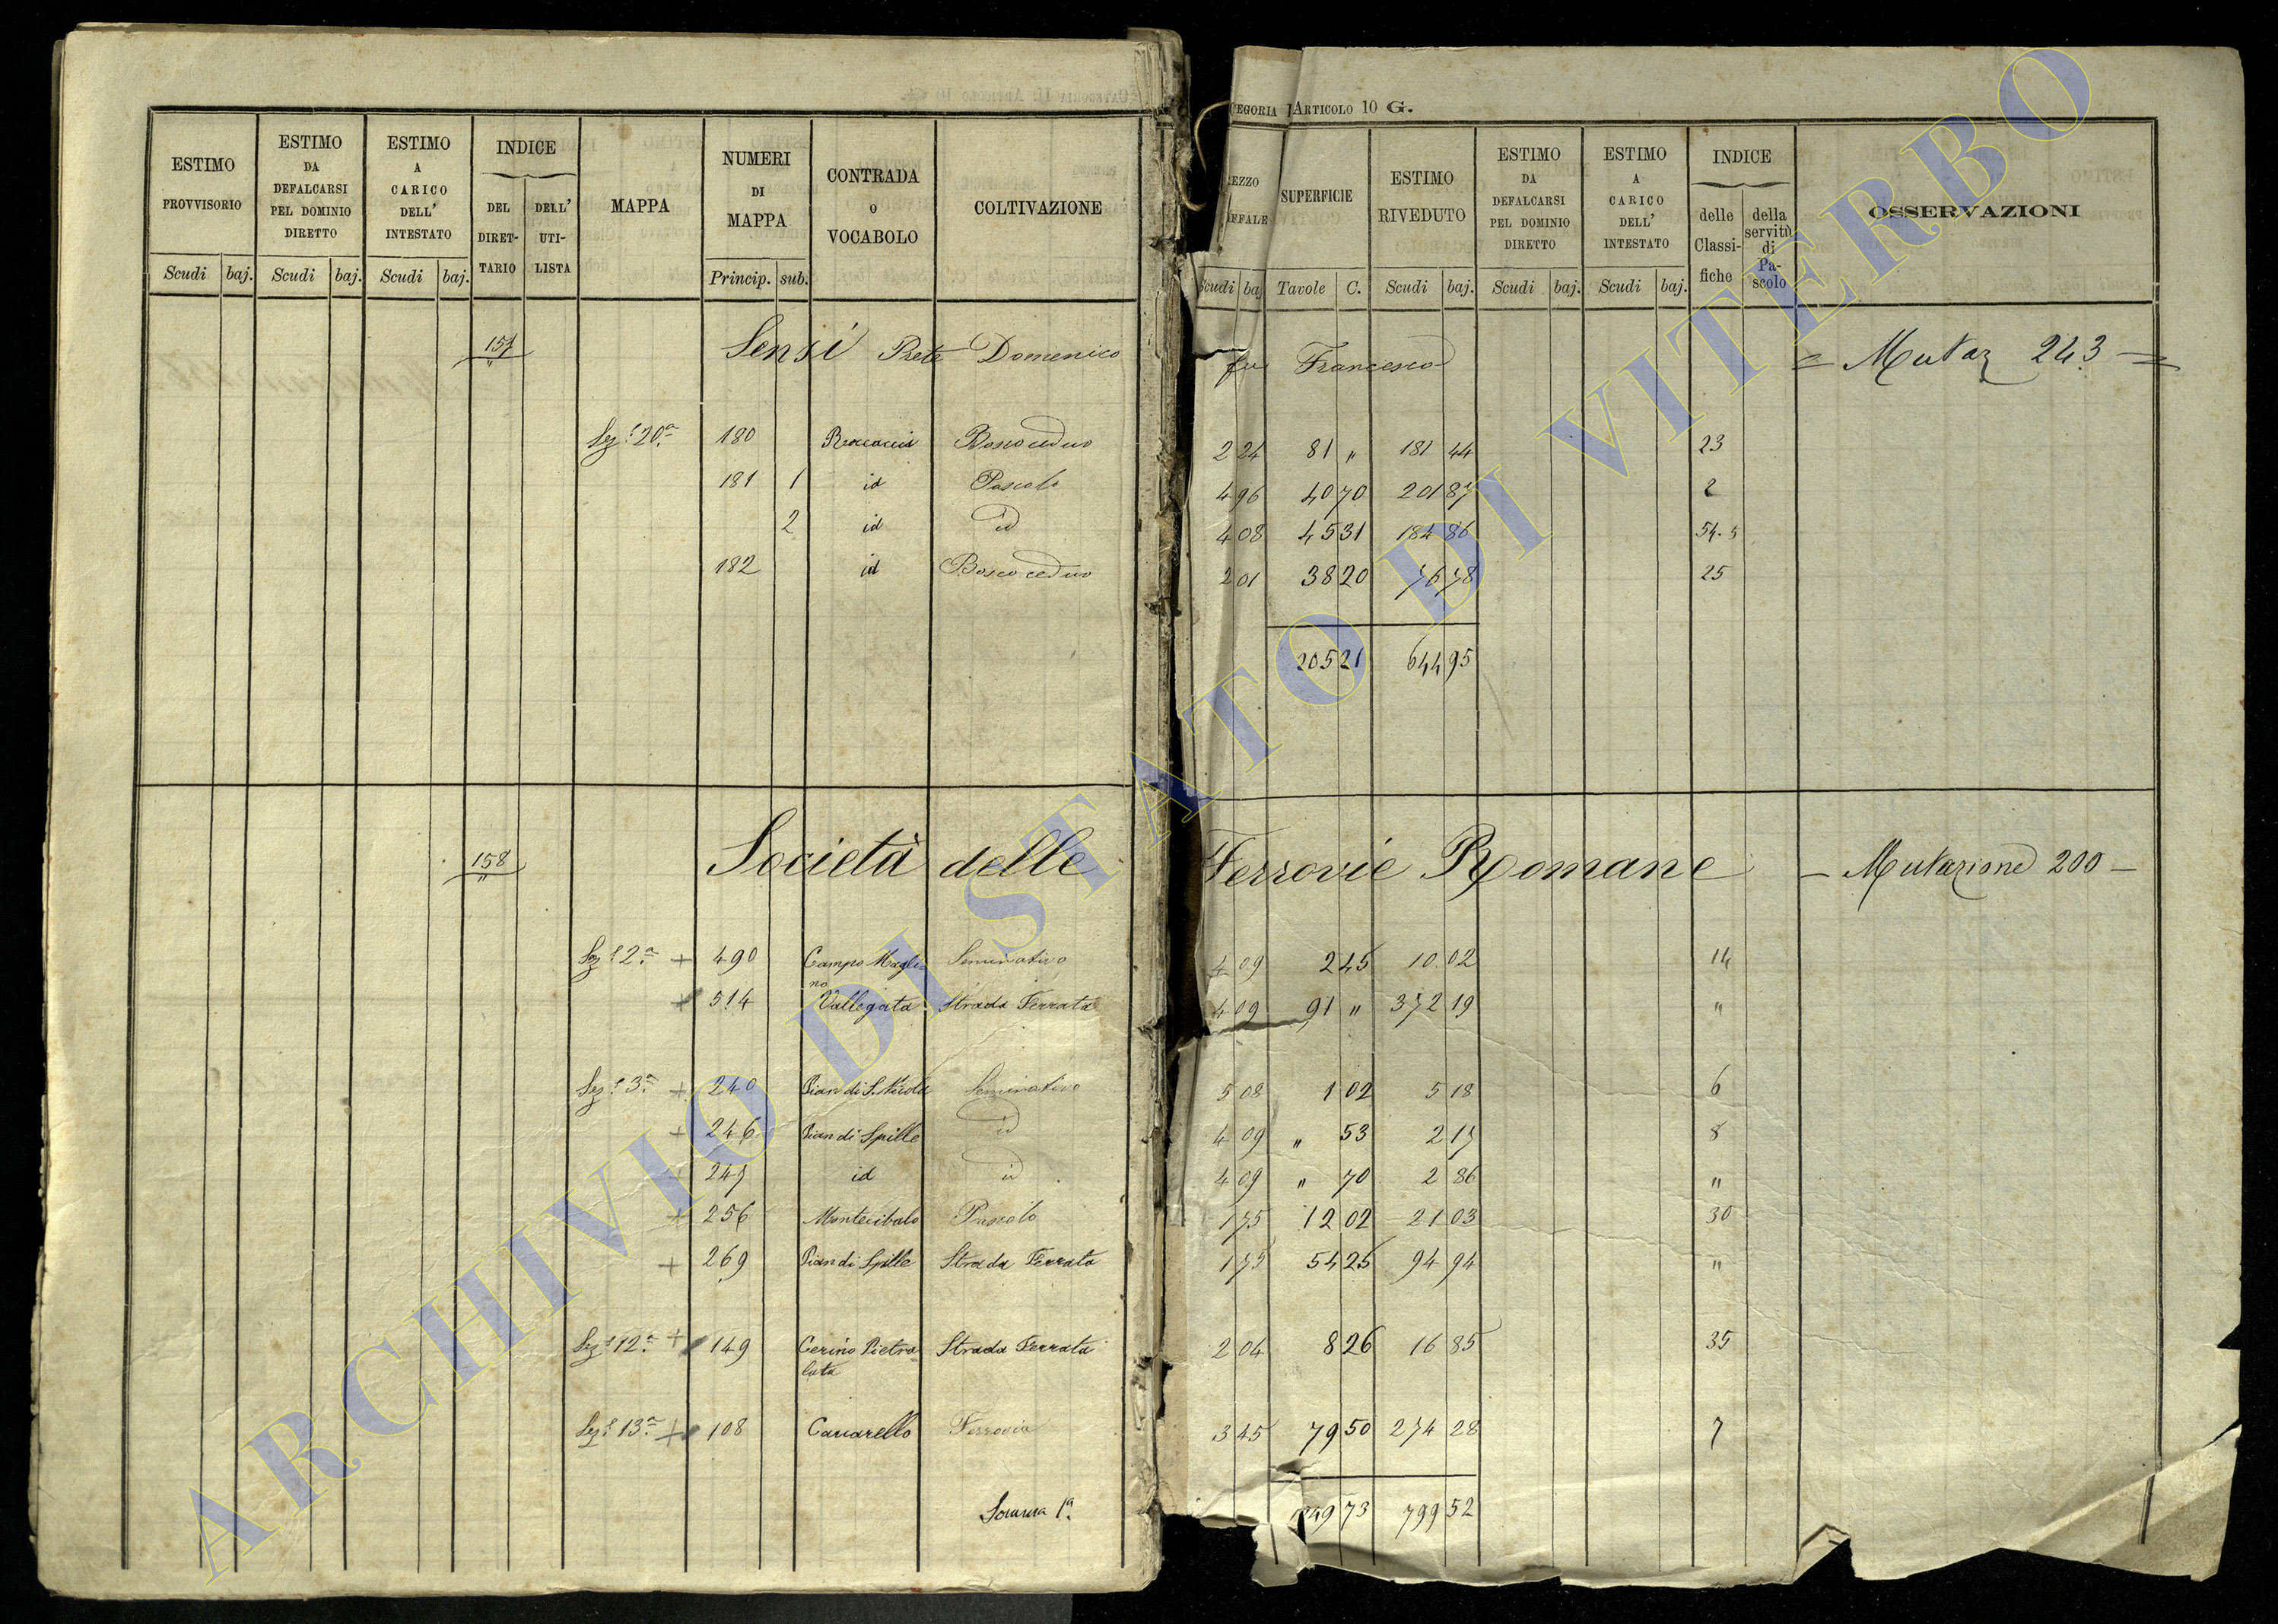 CATEGORIA II. ARTICOLO 10 G.
EGORIA ARTICOLO 10 G.
ESTIMO PROVVISORIO Scudi baj.
ESTIMO DA DEFALCARSI PEL DOMINIO DIRETTO Scudi baj.
ESTIMO A CARICO DELL' INTESTATO Scudi baj.
INDICE DEL DIRET-TARIO DELL' UTI-LISTA
MAPPA
NUMERI DI MAPPA Princip. sub.
CONTRADA O VOCABOLO
COLTIVAZIONE
EZZO IFFALE Scudi ba
SUPERFICIE Tavole C.
ESTIMO RIVEDUTO Scudi baj.
ESTIMO DA DEFALCARSI PEL DOMINIO DIRETTO Scudi baj.
ESTIMO A CARICO DELL' INTESTATO Scudi baj.
INDICE delle Classi-fiche della servitù di Pa-scolo
OSSERVAZIONI
157 Sensi Prete Domenico fu Francesco = Mutaz 243 =
Sez.e 20.a 180 Roccaccia Bosco ceduo 2 24 81 " 181 44 23
181 1 id Pascolo 4 96 40 70 201 87 2
2 id id 4 08 45 31 184 86 54.5
182 id Bosco ceduo 2 01 38 20 76 78 25
205 21 644 95
158 Società delle Ferrovie Romane — Mutazione 200 —
Sez.e 2.a + 490 Campo Magli=
no Seminativo 4 09 2 45 10 02 14
+ 514 Vallegata Strada Ferrata 4 09 91 " 372 19 "
Sez.e 3.a + 240 Pian di S. Nicola Seminativo 5 08 1 02 5 18 6
+ 246 Pian di Spille id 4 09 " 53 2 17 8
+ 247 id id 4 09 " 70 2 86 "
+ 256 Montecibalo Pascolo 1 75 12 02 21 03 30
+ 269 Pian di Spille Strada Ferrata 1 75 54 25 94 94 "
Sez.e 12.a + 149 Cerino Pietra
lata Strada Ferrata 2 04 8 26 16 85 35
Sez.e 13.a + 108 Cavarello Ferrovia 3 45 79 50 274 28 7
Somma 1a. 249 73 799 52
ARCHIVIO DI STATO DI VITERBO